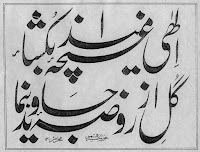 الٰهی غنچهٔ امید بکشای
گلی از روضهٔ جاوید بنمای